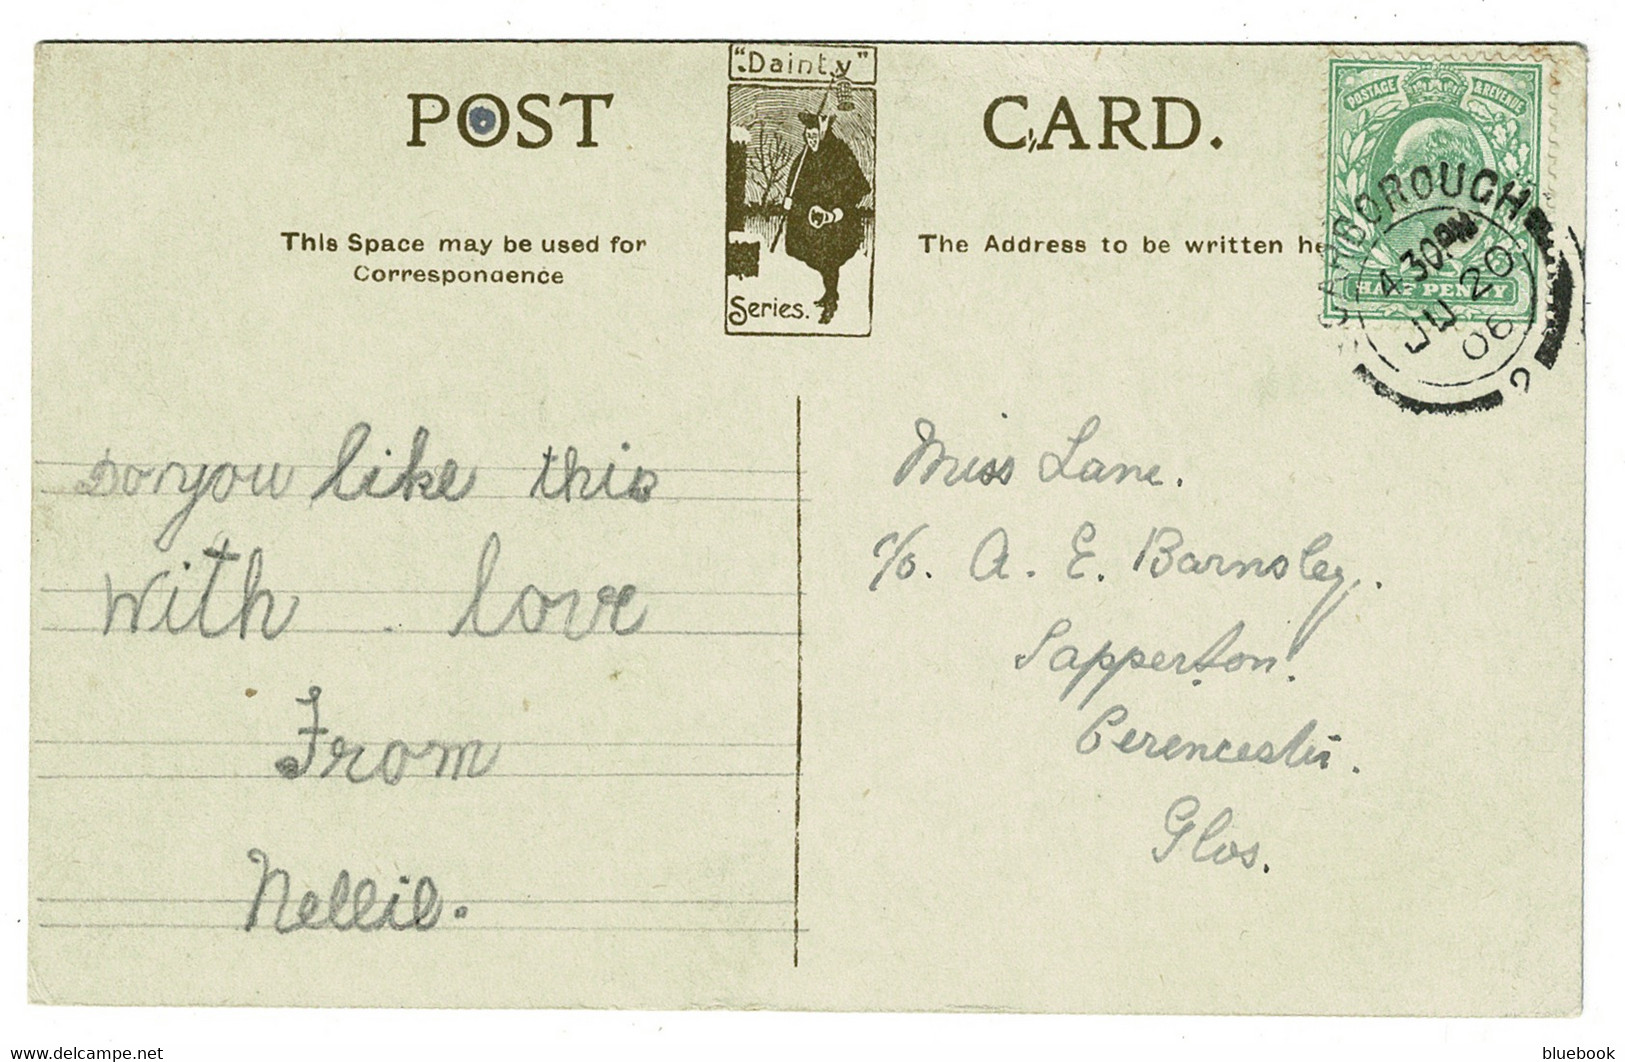 "Dainty"
POST CARD.
This Space may be used for
Correspondence
The Address to be written he
Series.
POSTAGE & REVENUE
HALF PENNY
SCARBOROUGH
4.30PM
JU 20
06
2
Do you like this
With love
From
Nellie.
Miss Lane.
c/o. A. E. Barnsley.
Sapperton.
Cerencester.
Glos.
bluebook